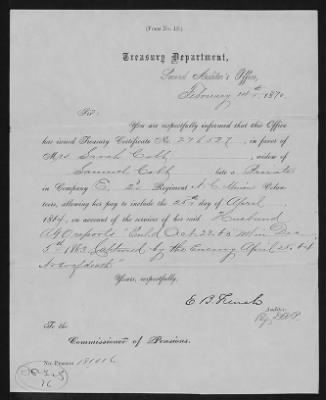 (Form No. 13.)
Treasury Department,
Second Auditor's Office,
February 14th, 1870.
Sir:
You are respectfully informed that this Office
has issued Treasury Certificate No. 276527, in favor of
Mrs. Sarah Cobb, widow of
Samuel Cobb, late a Private
in Company E, 2d Regiment N.C. Union Volun-
teers, allowing her pay to include the 25th day of April
1864, on account of the service of her said Husband
A.G.O reports "Enl'd Oct. 22. 63 M in Dec
5th 1863 Captured by the Enemy April 25. 64
death"
Yours, respectfully,
E. B. French
Auditor.
To the
Commissioner of Pensions.
No. Pension
76